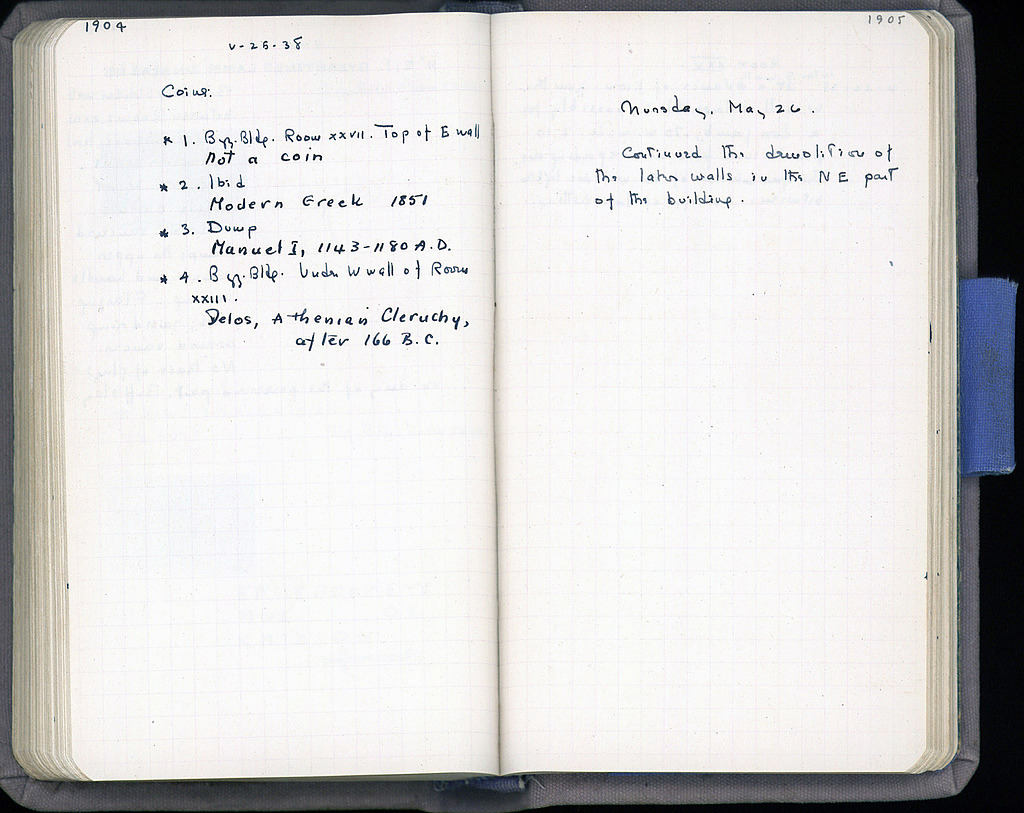 1904
V-25-38
Coins.
* 1. Byz. Bldg. Room xxvii. Top of E wall
Not a coin
* 2. Ibid
Modern Greek 1851
* 3. Dump
Manuel I, 1143-1180 A.D.
* 4. Byz. Bldg. Under W wall of Room
xxiii.
Delos, Athenian Cleruchy,
after 166 B.C.
1905
Thursday, May 26.
Continued the demolition of
the later walls in the NE part
of the building.